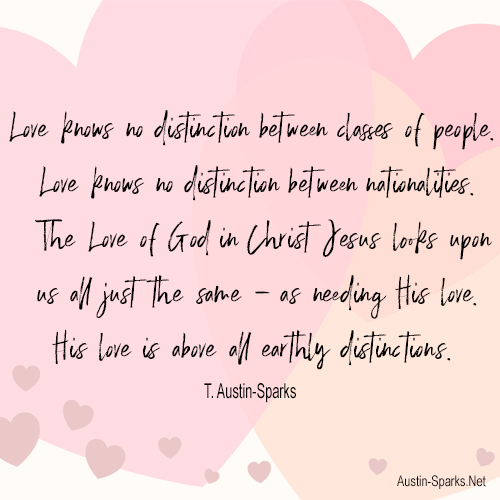 Love knows no distinction between classes of people.
Love knows no distinction between nationalities.
The Love of God in Christ Jesus looks upon
us all just the same – as needing His love.
His love is above all earthly distinctions.
T. Austin-Sparks
Austin-Sparks.Net